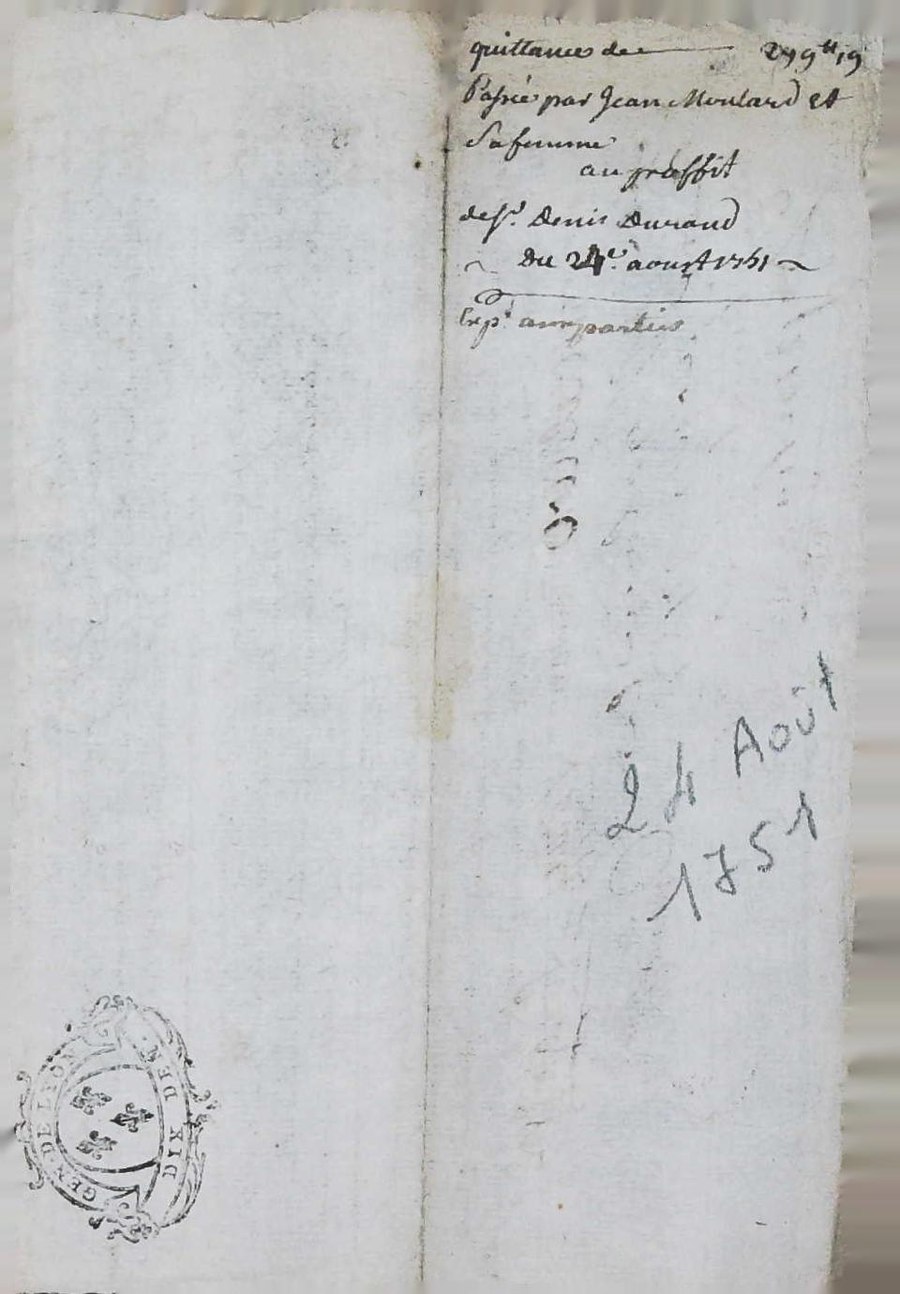 quittance de 299ᵗᵗ 19
Passée par Jean Moulard et
Sa femme
au proffit
de Sʳ. Denis Durand
du 24ᵉ. aoust 1751
Expᵉ aux parties
24 Août
1751
GEN·DE LYON
DIX DEN·